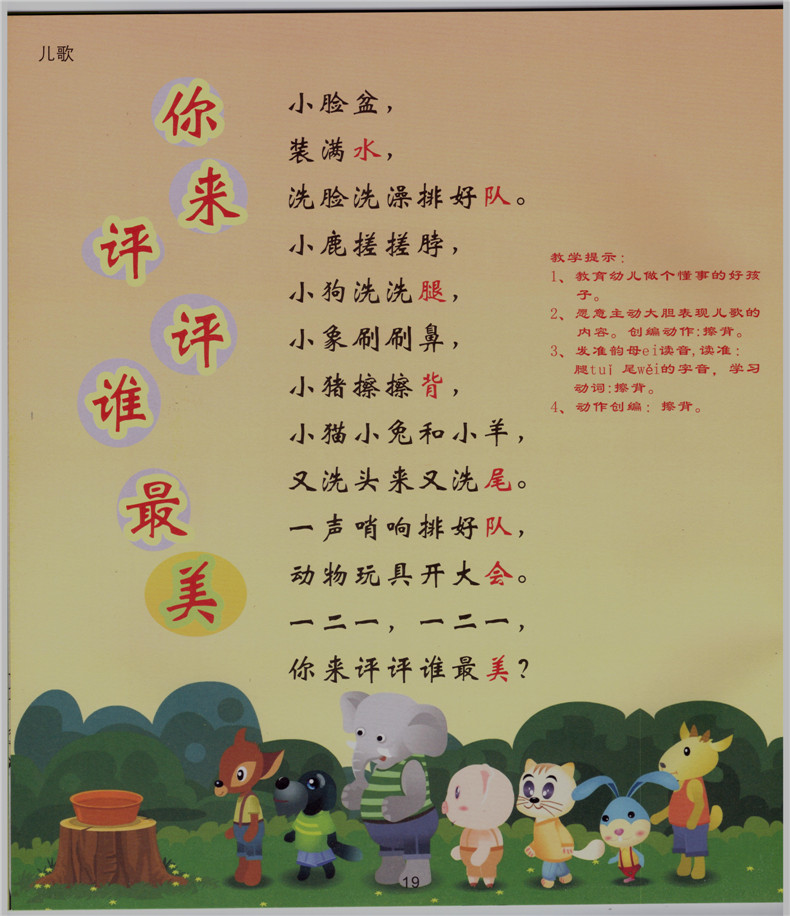 儿歌
你来评评谁最美
小脸盆，
装满水，
洗脸洗澡排好队。
小鹿搓搓脖，
小狗洗洗腿，
小象刷刷鼻，
小猪擦擦背，
小猫小兔和小羊，
又洗头来又洗尾。
一声哨响排好队，
动物玩具开大会。
一二一，一二一，
你来评评谁最美？
教学提示：
1、教育幼儿做个懂事的好孩
子。
2、愿意主动大胆表现儿歌的
内容。创编动作:擦背。
3、发准韵母ei读音,读准：
腿tuǐ 尾wěi的字音，学习
动词:擦背。
4、动作创编：擦背。
19